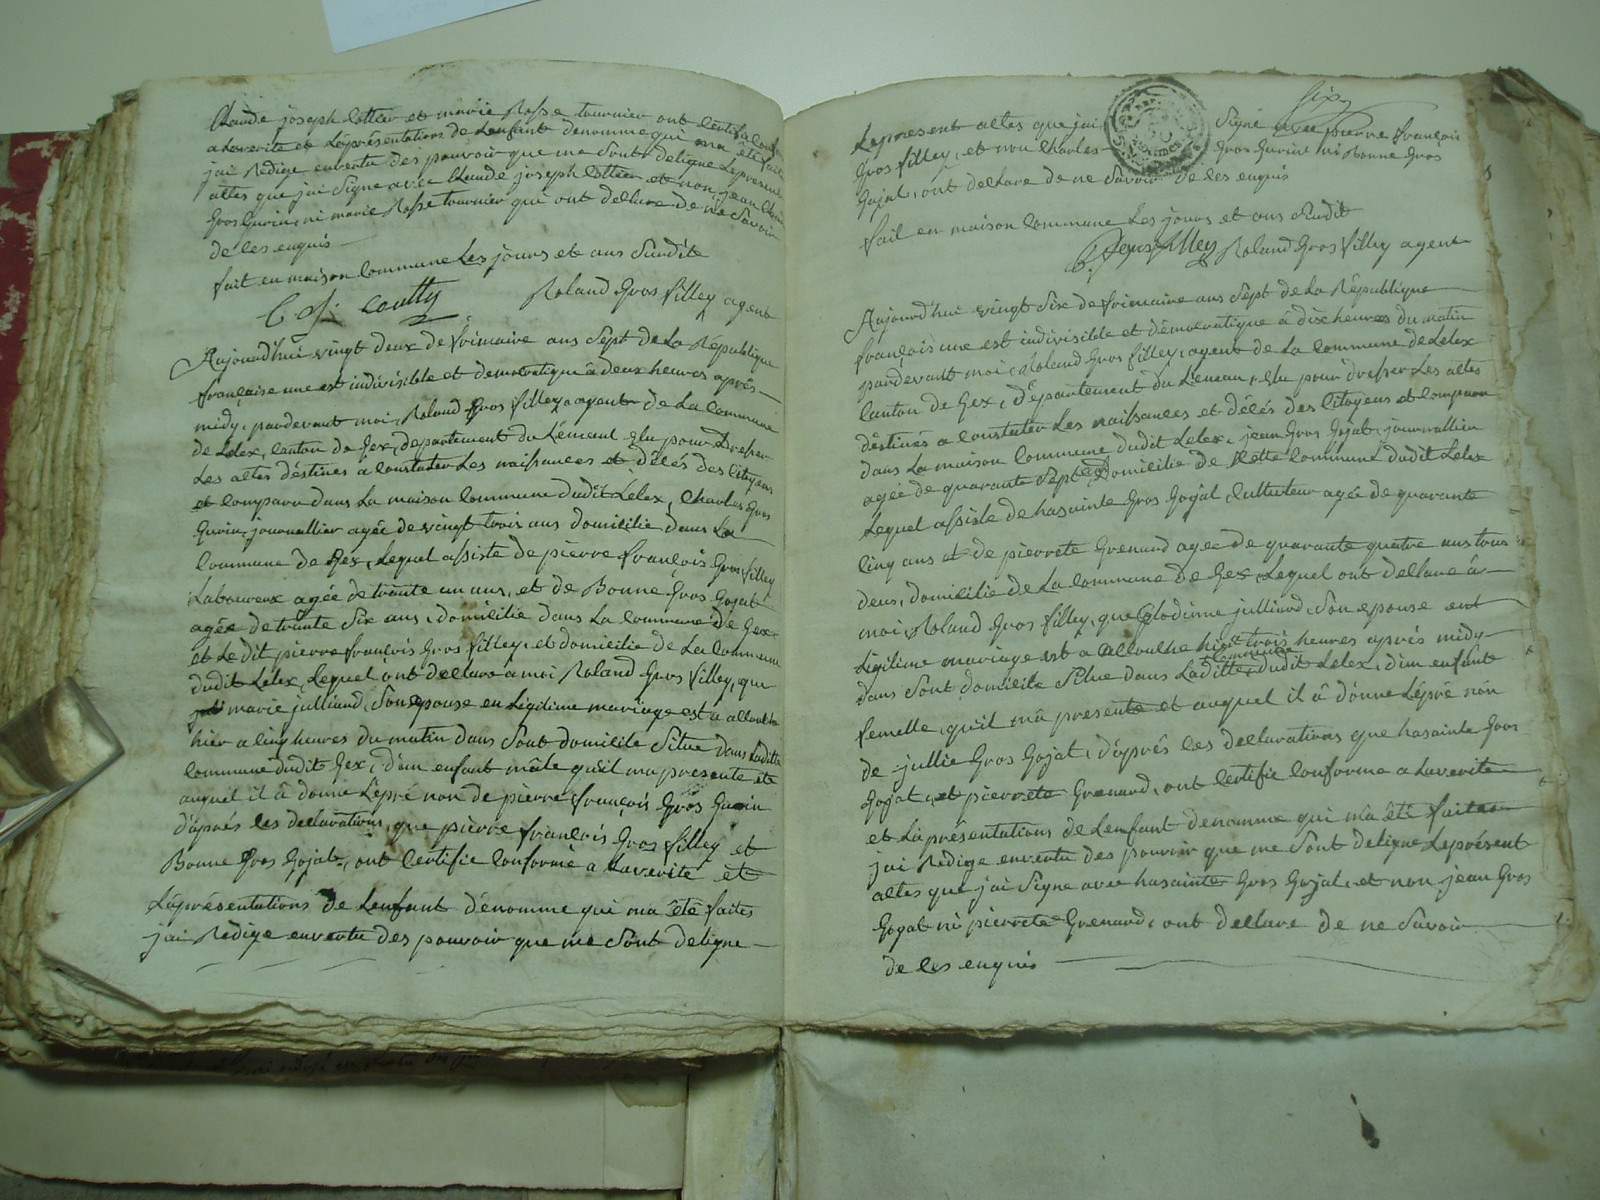 Claude joseph Cottier et marie Rosse tournier ont Certifie Conf
a Laverite et Léprésentations de Lenfant dénomme qui ma été fait
jai Rédige envertu des pouvoir que me Sont deligne Lepresent
altes que jai Signe avec Claude joseph Cottier et non jean
Gros Gurin, ni marie Rosse tournier qui ont dellare de ne Savoir
dé les enquis
fait en maison Commune Les jours et ans Surdite
Roland Gros filley agent
Aujourd'hui vingt deux de frimaire ans Sept de La République
française une est indivisible et démocratique à deux heures aprés
midy, pardevant moi, Roland Gros filley agant de La Commune
de Lelex, Canton de Gex, departement du Lément Elu pour Dresser
Les altes déstines a Constater Les naissances et délés des Citoyens
et Comparu dans La maison Commune dudit Lelex, Charles Gros
Gurin, journallier agée de vingt trois ans domicilie dans La
Commune de Gex, Lequel assiste de pierre françois Gros filley
Laboureux agée de trante un ans, et de Bonne Gros Gojat
agée de trante Six ans, domicilie dans La Commune de Gex
et Le dit pierre françois Gros filley, et domicilie de La Commune
dudit Lelex, Lequel ont dellare a moi Roland Gros filley, que
marie julliard, Son epouse en Légitime mariage est a alloulhe
hier a Cinq heures du matin dans Sont domicile Situe dans Ladite
Commune dudit Gex, d'un enfant mâle qu'il ma présente et
auquel il à donne Lépré non de pierre françois Gros Gurin
d'aprés les déclarations, que pierre françois Gros filley et
Bonne Gros Gojat, ont Certifie Conforme a Laverité et
Léprésentations de Lenfant dénomme qui ma été faites
jai Rédige envertu des pouvoir que me Sont deligne
Six
Lepresent altes que jai Signe avec pierre françois
Gros filley, et non Charles Gros Gurin ni Bonne Gros
Gojat, ont dellare de ne Savoir de les enquis
fait en maison Commune Les jours et ans Sudit
Roland Gros filley agent
Aujourd'hui vingt Six de frimaire ans Sept de La République
françois une est indivisible et démocratique à dix heures du matin
pardevant moi, Roland Gros filley, agent de La Commune de Lelex
Canton de Gex, Département du Léman, Elu pour dresser Les altes
déstinés a Constater Les naissances et délés des Citoyens et Comparu
dans La maison Commune dudit Lelex, jean Gros Gojat, journallier
agée de quarante Sept ans Domicilie de Cette Commune dudit Lelex
Lequel assiste de hasainte Gros Gojat, Cultivteur agée de quarante
Cinq ans et de pierrete Grenard agée de quarante quatre ans tous
deux, domicilie de La Commune de Gex, Lequel ont dellare à
moi Roland Gros filley, que Clodinne julliard, Son epouse ent
Légitime mariage est a alloulhe hier trois heures aprés midy
dans Sont domicile Situe dans Laditte Commune dudit Lelex, d'un enfant
femelle, qu'il mà presente et auquel il à dónne Lépré nón
de jullie Gros Gojat, d'aprés les declarations que hasainte Gros
Gojat, et pierrete Grenard, ont Certifie Conforme a Laverite
et Léprésentations de Lenfant denomme qui mà été faites
jai Rédige envertu des pouvoir que me Sont deligne Leprésent
altes que jai Signe avec hasainte Gros Gojat, et non jean Gros
Gojat ni pierrete Grenard, ont dellare de ne Savoir
de les enquis